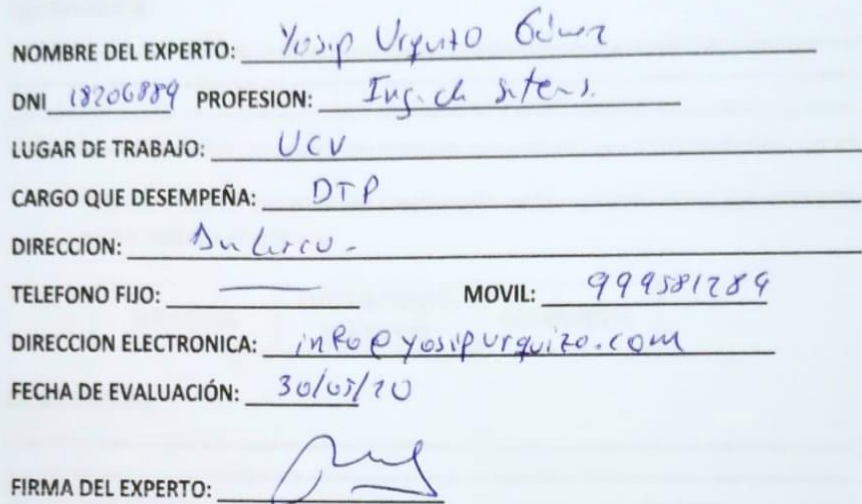 NOMBRE DEL EXPERTO: Yosip Urquizo Gómez
DNI 18206889 PROFESION: Ing. de sistems.
LUGAR DE TRABAJO: UCV
CARGO QUE DESEMPEÑA: DTP
DIRECCION:
TELEFONO FIJO: — MOVIL: 999581289
DIRECCION ELECTRONICA: info@yosipurquizo.com
FECHA DE EVALUACIÓN: 30/05/20
FIRMA DEL EXPERTO: